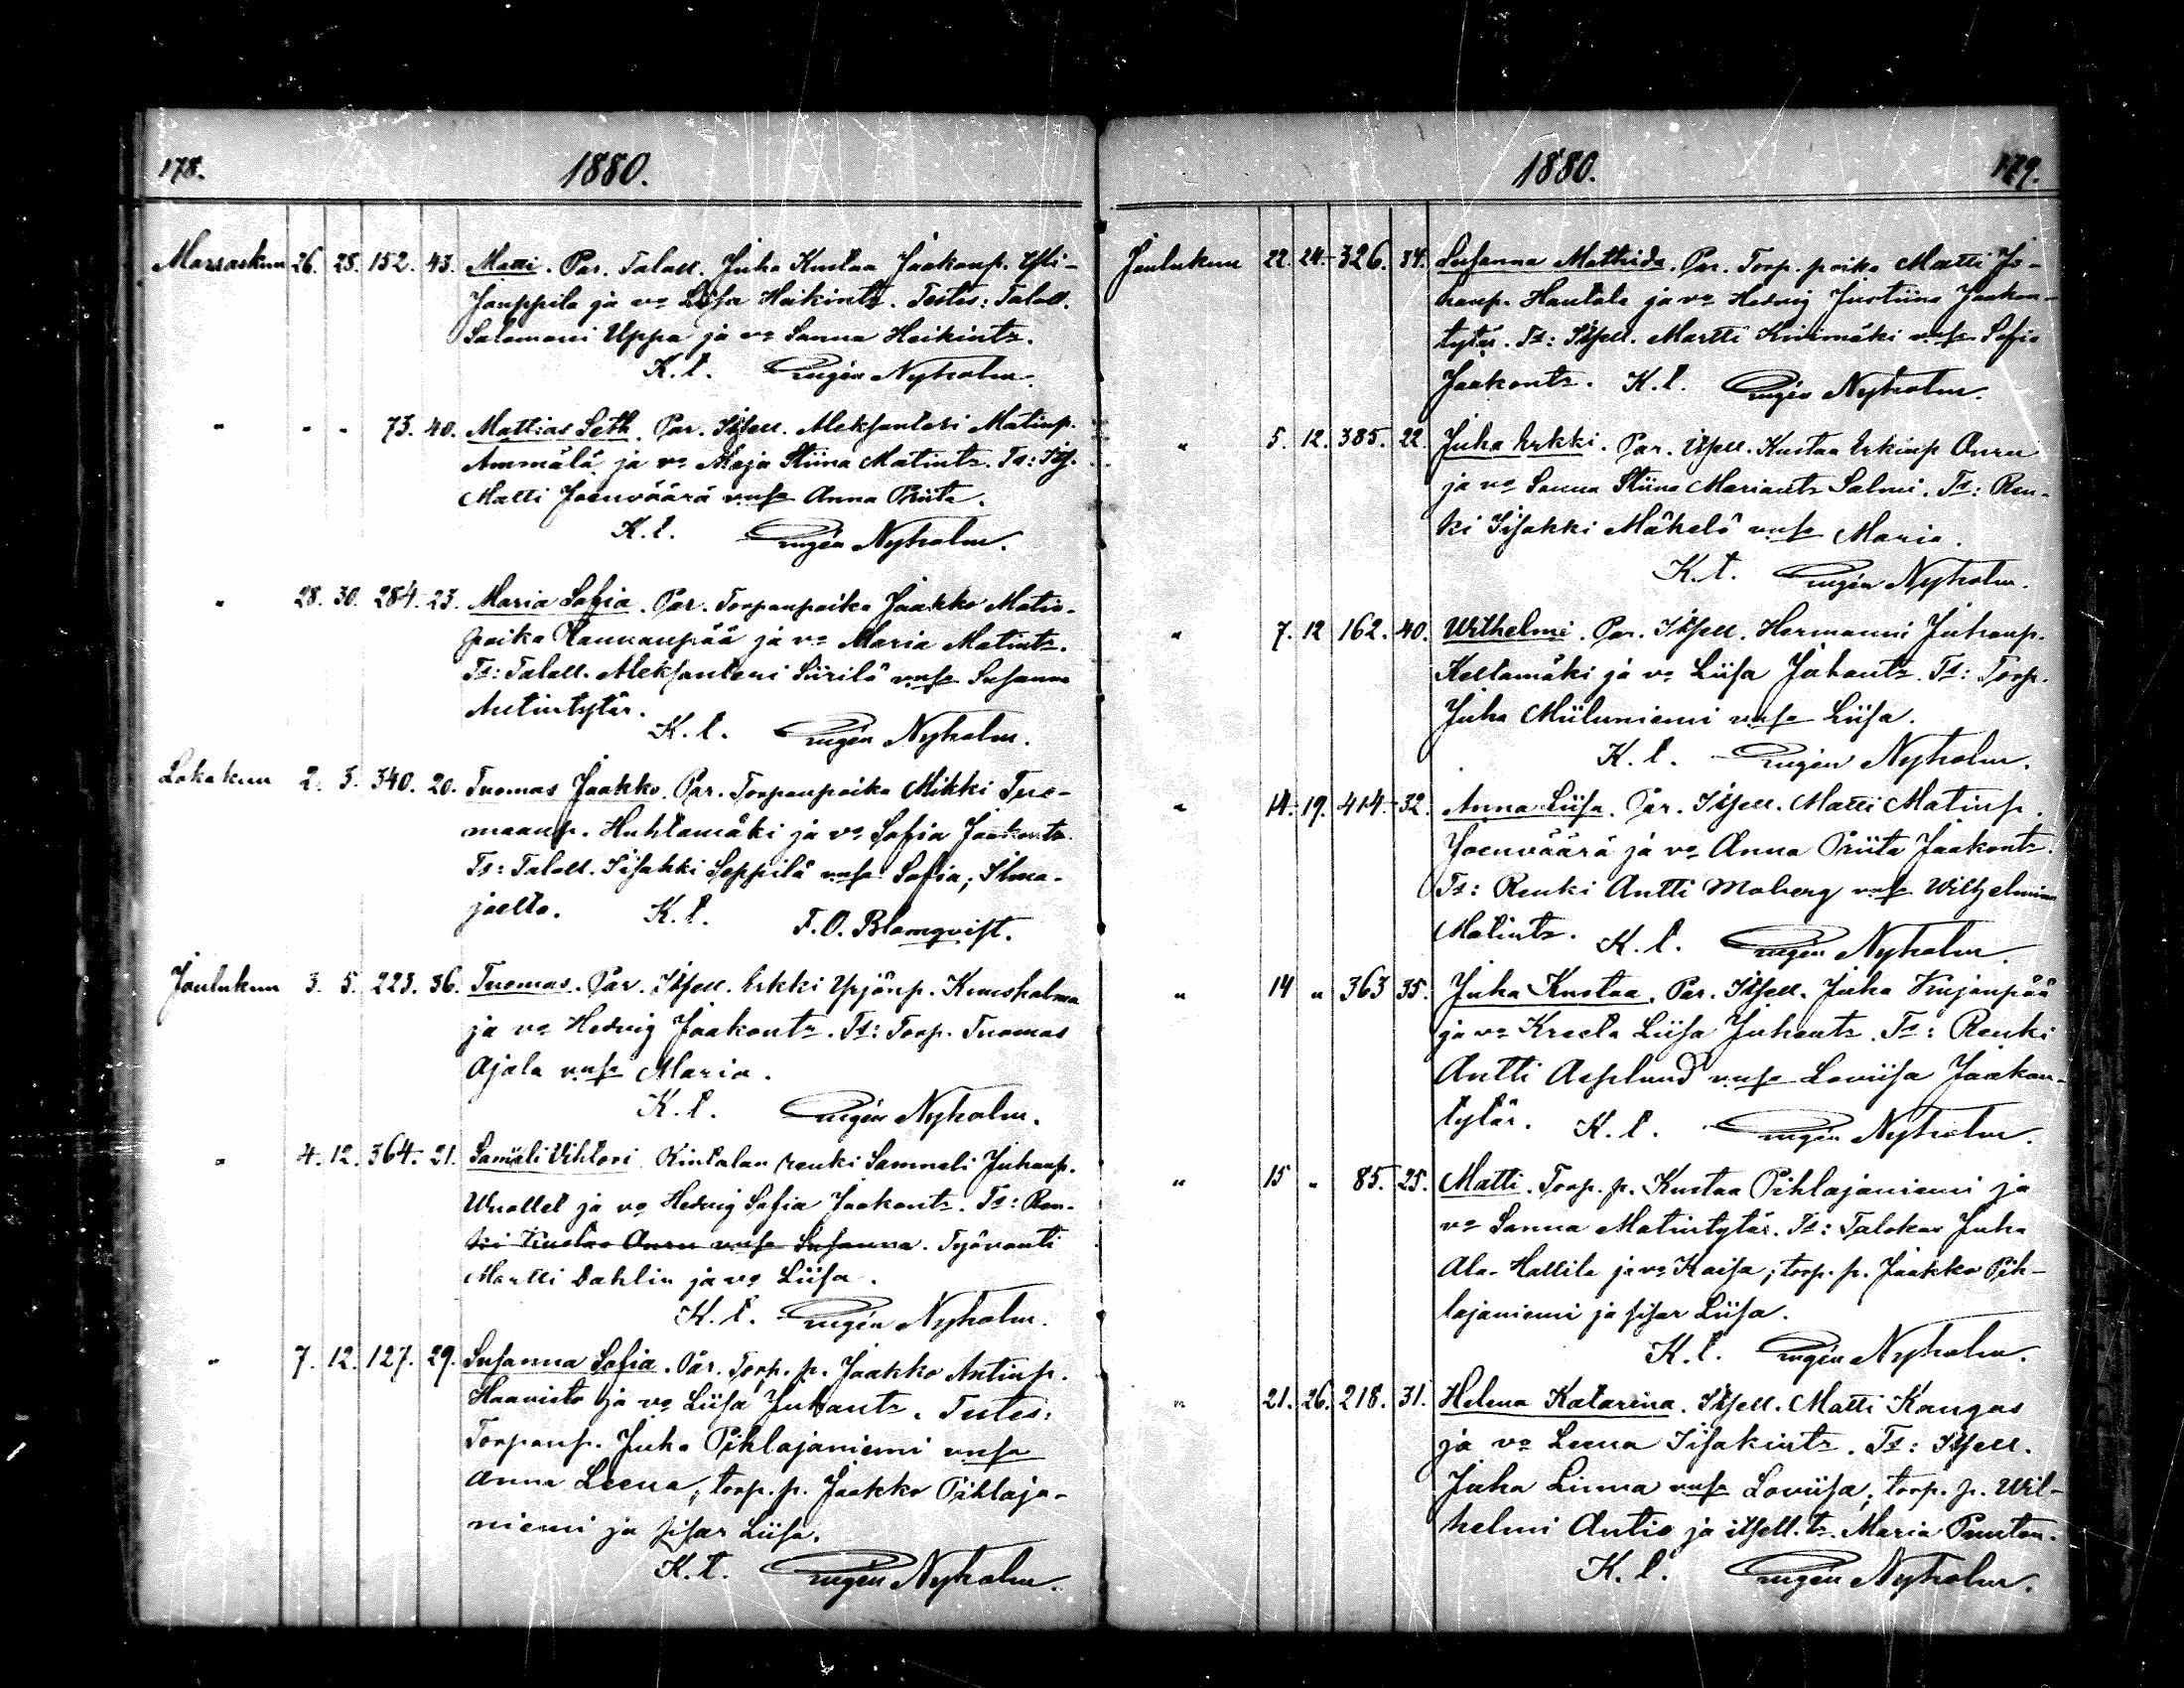 178.
1880.
Marraskuu 26. 28. 152. 43. Matti. Par. Talall. Juha Kustaa Jaakonp. Yli-
Jouppila ja vo Liisa Heikintr. Testes: Talall.
Salomoni Uppa ja vo Sanna Heikintr.
K.t. Eugén Nyholm.
" " " 73. 40. Mattias Seth. Par. Itsell. Aleksanteri Matinp.
Ammälä ja vo Maja Stiina Matintr. Ts: Its.
Matti Joenväärä vmsa Anna Priita.
K.t. Eugén Nyholm.
" 28. 30. 284. 23. Maria Sofia. Par. Torpanpoika Jaakko Matin-
poika Rannanpää ja vo Maria Matintr.
Ts: Talall. Aleksanteri Siirilä vmsa Susanna
Antintytär.
K.t. Eugén Nyholm.
Lokakuu 2. 3. 340. 20. Tuomas Jaakko. Par. Torpanpoika Mikki Tuo-
maanp. Huhtamäki ja vo Sofia Jaakontr.
Ts: Talall. Iisakki Seppilä vmsa Sofia; Ilma-
joelta. K.t. F.O. Blomqvist.
Joulukuu 3. 5. 223. 36. Tuomas. Par. Itsell. Erkki Yrjönp. Kuusholma
ja vo Hedvig Jaakontr. Ts: Torp. Tuomas
Ajala vmsa Maria.
K.t. Eugén Nyholm.
" 4. 12. 364. 21. Samüli Vihtori Kintalan renki Sammeli Juhanp.
Wuollet ja vo Hedvig Sofia Jaakontr. Ts: Ren-
ki Kustaa Anru vmsa Susanna. Työvanti
Martti Dahlin ja vo Liisa.
K.t. Eugén Nyholm.
" 7. 12. 127. 29. Susanna Sofia. Par. Torp. p. Jaakko Antinp.
Haavisto ja vo Liisa Juhantr. Testes:
Torpanp. Juha Pihlajaniemi vmsa
Anna Leena; torp. p. Jaakko Pihlaja-
niemi ja sisar Liisa.
K.t. Eugén Nyholm.
1880.
179.
Joulukuu 22. 24. 326. 34. Susanna Mathida. Par. Torp. poika Matti Jo-
hanp. Hautala ja vo Hedvig Justiina Jaakon-
tytär. Ts: Itsell. Martti Kivimäki vmsa Sofia
Jaakontr. K.t. Eugén Nyholm.
" 5. 12. 385. 22. Juha Erkki. Par. Itsell. Kustaa Erkinp Anru
ja vo Sanna Stiina Mariantr Salmi. Ts: Ren-
ki Iisakki Mäkelä vmsa Maria.
K.t. Eugén Nyholm.
" 7. 12 162. 40. Wilhelmi. Par. Itsell. Hermanni Juhanp.
Keltamäki ja vo Liisa Juhantr. Ts: Torp.
Juha Miiluniemi vmsa Liisa.
K.t. Eugén Nyholm.
" 14. 19. 414. 32. Anna Liisa. Par. Itsell. Matti Matinp.
Joenväärä ja vo Anna Priita Jaakontr.
Ts: Renki Antti Moberg vmsa Wilhelmina
Matintr. K.t. Eugén Nyholm.
" 14 " 363 35. Juha Kustaa. Par. Itsell. Juha Kujanpää
ja vo Kreeta Liisa Juhantr. Ts: Renki
Antti Asplund vmsa Loviisa Jaakon-
tytär. K.t. Eugén Nyholm.
" 15 " 85. 25. Matti. Torp. p. Kustaa Pihlajaniemi ja
vo Sanna Matintytär. Ts: Talokas Juha
Ala-Hallila ja vo Kaisa; torp. p. Jaakko Pih-
lajaniemi ja sisar Liisa.
K.t. Eugén Nyholm.
" 21. 26. 218. 31. Helena Katarina. Itsell. Matti Kangas
ja vo Leena Iisakintr. Ts: Itsell.
Juha Linna vmsa Loviisa; torp. p. Wil-
helmi Antio ja itsell. tr. Maria Puntan.
K.t. Eugén Nyholm.